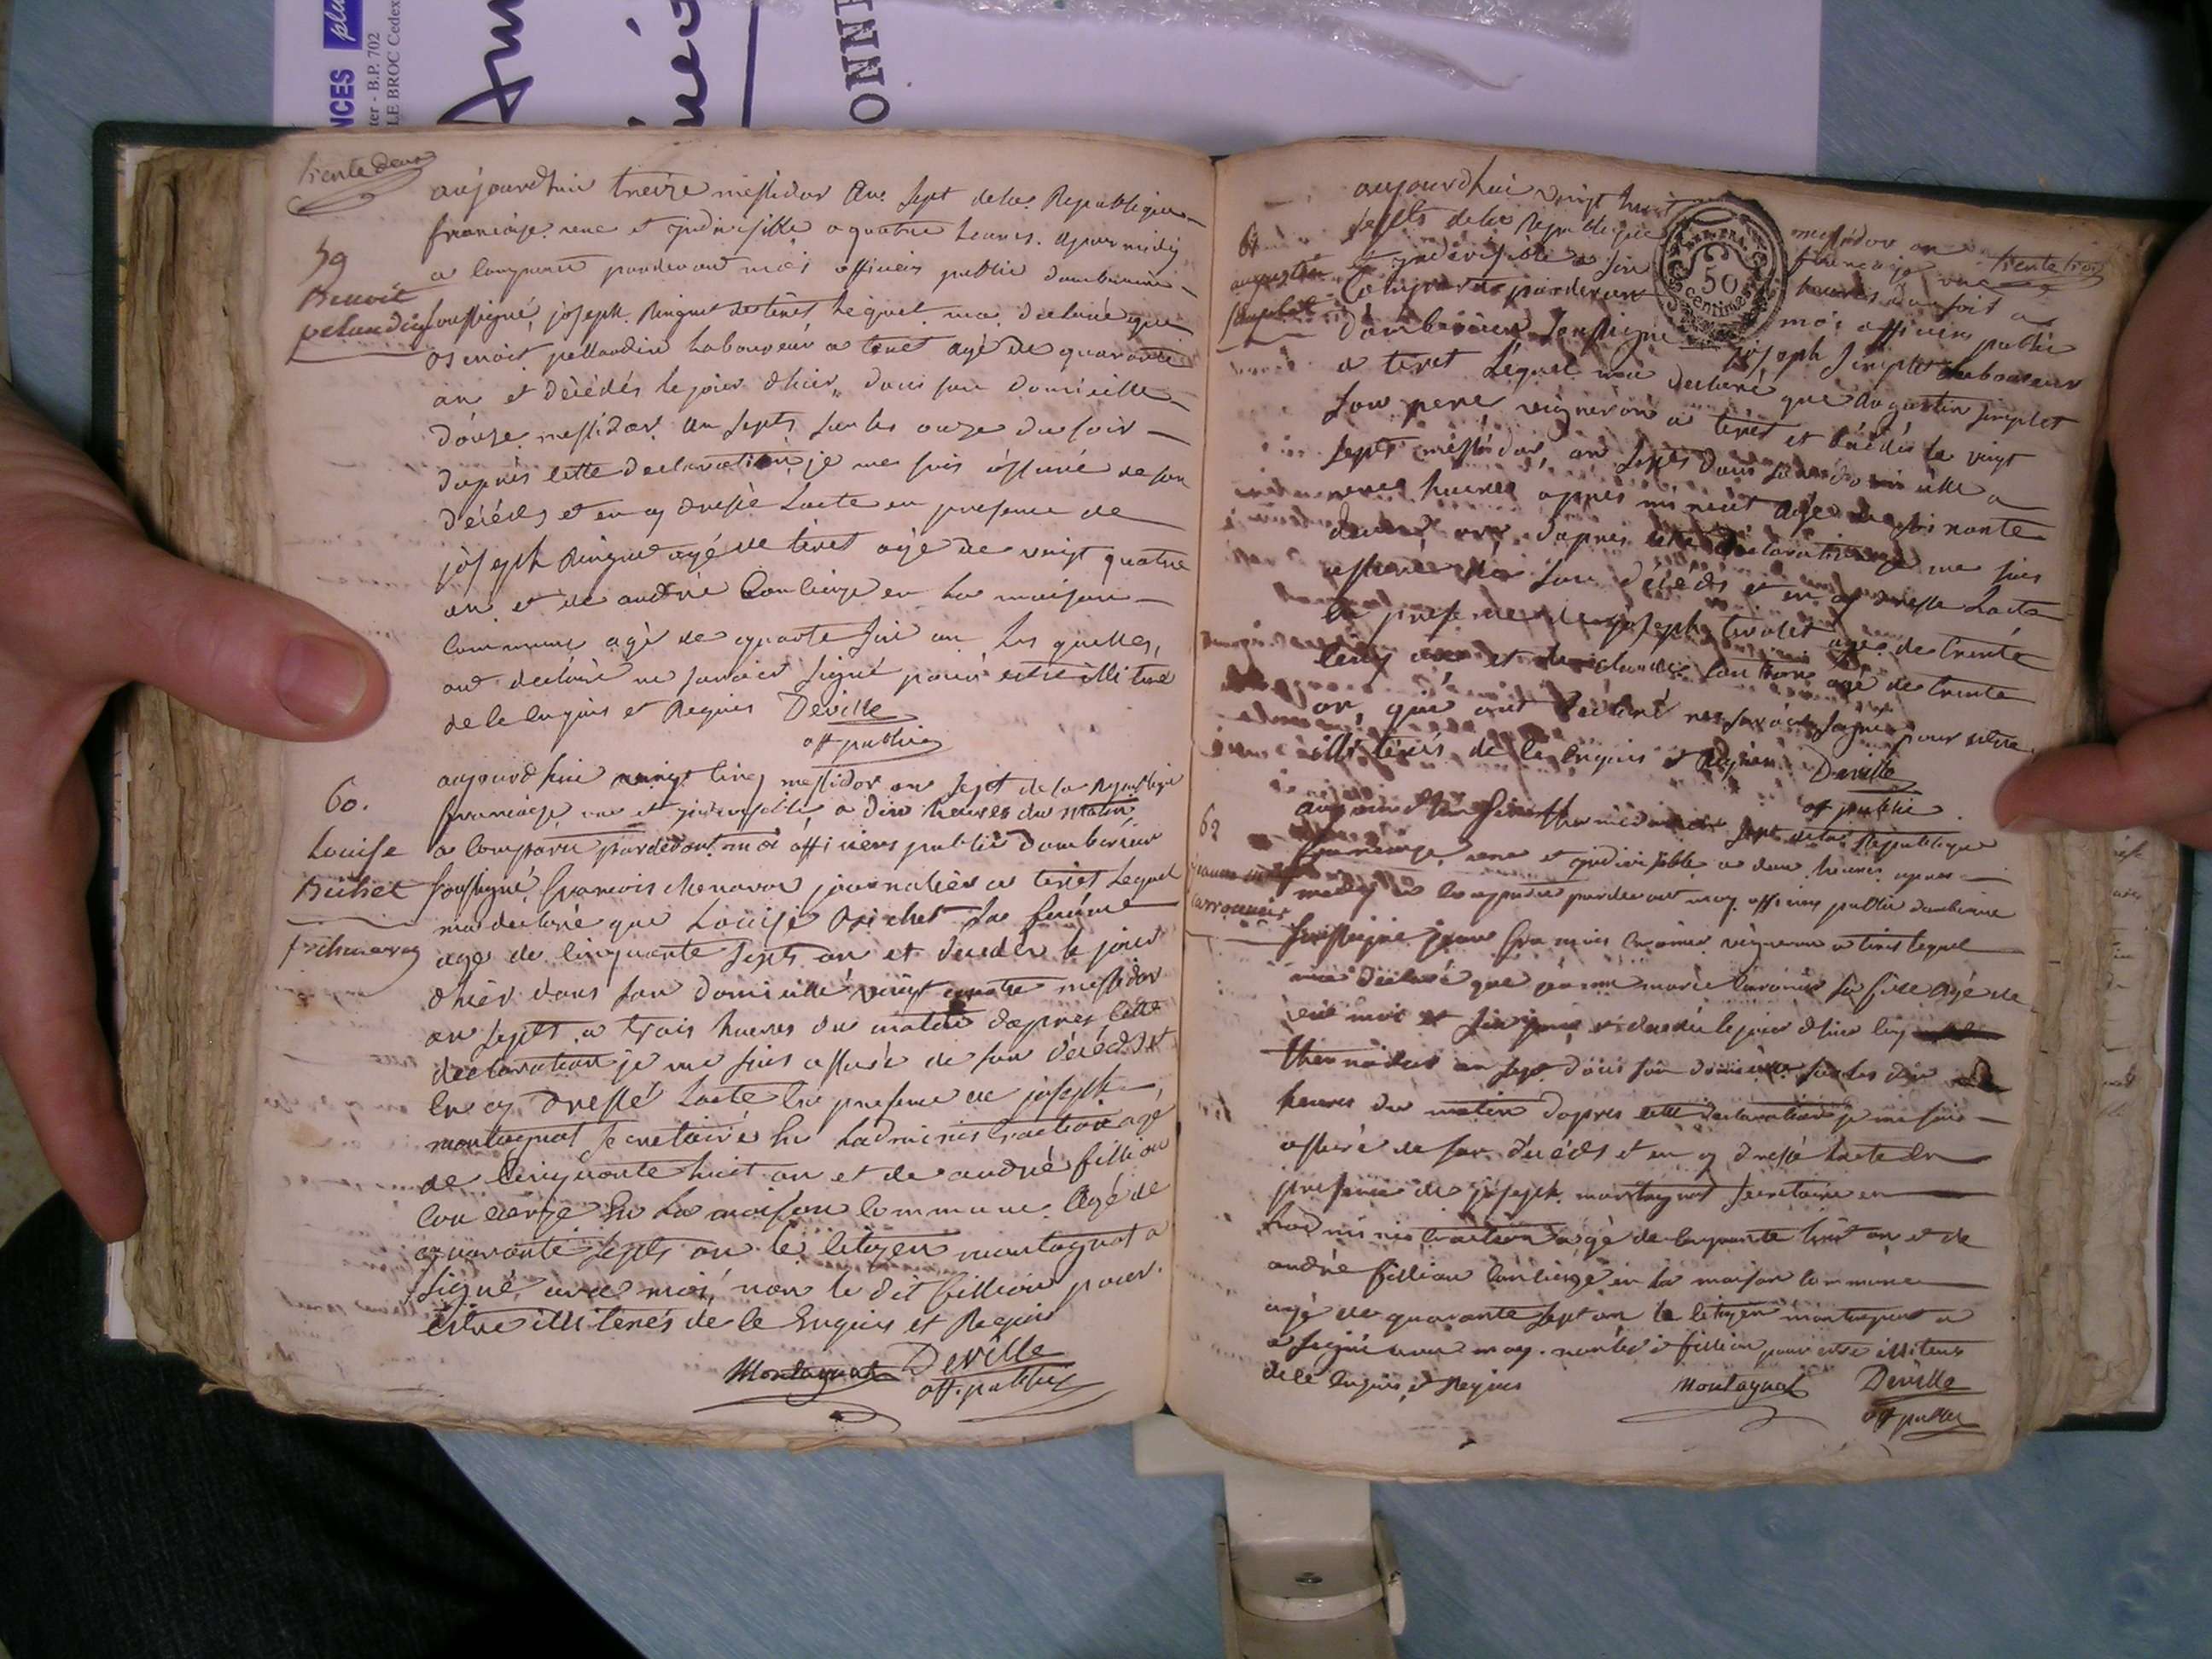 NCES plu
ter - B.P. 702
LE BROC Cedex
ONN
trente deux
59
Benoit
pelandin
aujourdhuy treize messidor an sept de la Republique
francaise une et indivisible a quatre heures apar midy
a comparut pardevant moi officier public damberieu
soussigné, joseph Ringuet de tiret lequel ma declaré que
Benoit pellandin laboureur a tiret agé de quarante
an et décédés le jour dhier, dans son domicille
douze messidor an septs sur les onze du soir
daprès cette declaration je me suis assuré de son
décéds et en ay dressé lacte en presence de
joseph Ringuet agé de tiret agé de vingt quatre
an et de andré Concierge en la maison
commune agé de quarante six an lesquelles,
ont declaré ne savoir signé pour estre illiteré
de le enquis et Requis Deville
off public
60.
Louise
Bichet
f. chenavas
aujourdhui vingt cinq messidor an sept de la Republique
francaise une et indivisible a dix heures du matin
a comparu pardevant moi officiers public damberieu
soussigné, francois chenavas journalier a tiret lequel
ma declaré que Louise Bichet sa femme
agé de cinquante septs an et decedée le jour
dhier dans son domicille vingt quatre messidor
an septs a trois heures du matin daprès cette
declaration je me suis assuré de son décéds et
en ay dressé lacte en presence de joseph
montagnat secretaire en ladministraction agé
de cinquante huit an et de andré fillion
concierge en la maison commune agé de
quarante septs an le citoyen montagnat a
signé avec moi, non le dit fillion pour
estre illiterés de le enquis et Requis
Montagnat Deville
off. public
trente trois
61
augustin
simplet
REP. FRA.
50
centimes
aujourdhui vingt huit messidor an
septs de la Republique francaise une
et indivisible a six heures du soir a
comparut pardevant moi officiers public
damberieu soussigné joseph simplet laboureur
a tiret lequel ma declaré que augustin simplet
son pere vigneron a tiret et décédés le vingt
septs messidor, an septs dans son domicille a
heures appres minuit agé de soixante
an, dapres cette declaration je me suis
assuré de son décéds et en ay dressé lacte
en presence de joseph tivolet agé de trente
cinq an et de claude agé de trente
an, qui ont declaré ne savoir signé pour estre
illiterés de le enquis et Requis Deville
off public
62
jeanne marie
aujourdhui six thermidor an sept de la Republique
francaise une et indivisible a deux heures apres
midy a comparu pardevant moy officiers public damberieu
soussigné jean francois vigneron a tiret lequel
ma declaré que jeanne marie sa fille agé de
mois et six jours et decedée le jour dhier cinq
thermidor an sept dans son domicille sur les dix
heures du matin dapres cette declaration je me suis
assuré de son décéds et en ay dressé lacte en
presence de joseph montagnat secretaire en
ladministraction agé de cinquante huit an et de
andré fillion concierge en la maison commune
agé de quarante sept an le citoyen montagnat a
signé avec moy. non le dit fillion pour estre illiterés
de le enquis et Requis Montagnat Deville
off public